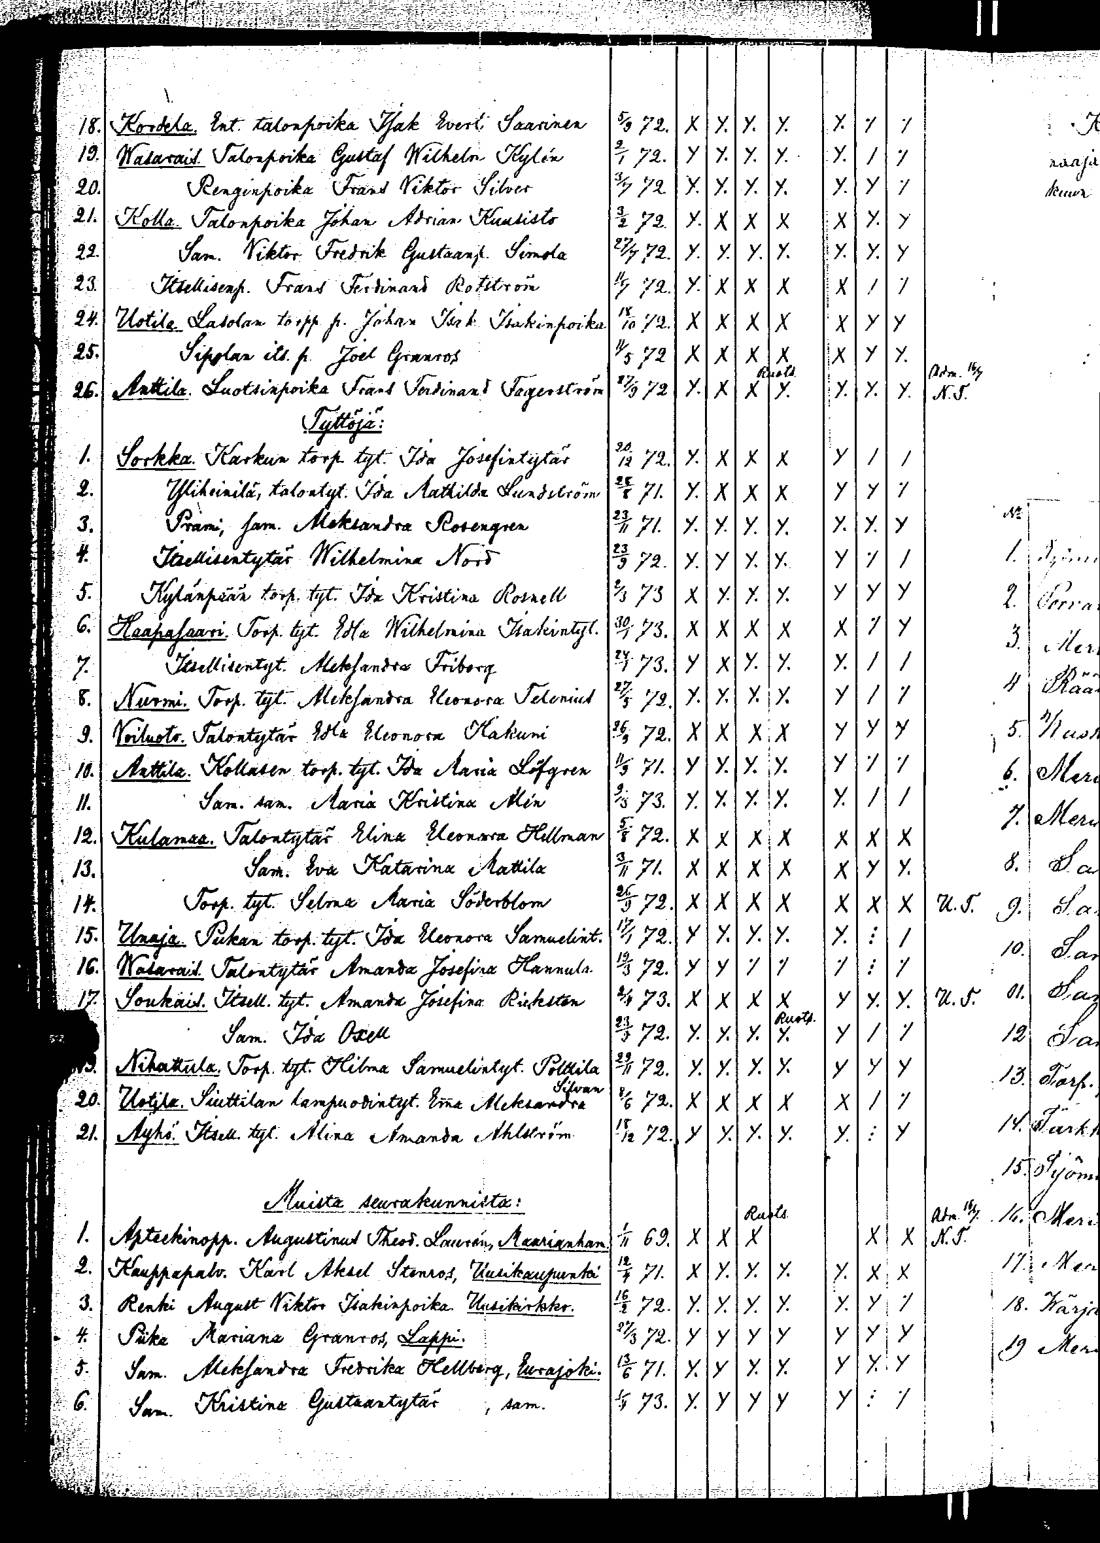 18. Kordela. Ent. talonpoika Isak Evert Saarinen 5/9 72. X Y. Y. Y. Y. Y Y
19. Wasarais. Talonpoika Gustaf Wilhelm Kylén 2/1 72. Y Y. Y. Y. Y. / Y
20. Rengenpoika Frans Viktor Silver 3/7 72 Y. Y. Y. Y. Y. Y Y
21. Kolla. Talonpoika Johan Adrian Kuusisto 3/2 72. Y. X X X X Y. Y
22. Sam. Viktor Fredrik Gustaanp. Simola 27/7 72. Y. Y. Y. Y. Y. Y. Y
23. Itsellisenp. Frans Ferdinand Rotström 11/7 72. Y. X X X X / Y
24. Uotila. Lasolan torpp p. Johan Isak Isakinpoika 18/10 72. X X X X X Y Y
25. Sipolan its. p. Joel Granros 11/5 72 X X X X X Y Y.
26. Anttila. Luotsinpoika Frans Ferdinand Fagerström 27/9 72 Y. X X Rusts. Y. Y. Y. Y. Adm. 16/7 N.T.
Tyttöjä:
1. Sorkka. Karkun torp. tyt. Ida Josefintytär 20/12 72. Y. X X X Y / /
2. Yliheinilä, talontyt. Ida Mathilda Lundström 28/8 71. Y. X X X Y Y Y
3. Prami, sam. Aleksandra Rosengren 23/11 71. Y. Y. Y. Y. Y. Y. Y
4. Itsellisentytär Wilhelmina Nord 23/9 72. Y. Y Y. Y. Y Y /
5. Kylänpään torp. tyt. Ida Kristina Rosnell 2/3 73 X Y. Y. Y. Y Y Y
6. Haapasaari. Torp. tyt. Edla Wilhelmina Isakintyt. 30/1 73. X X X X X Y Y
7. Itsellisentyt. Aleksandra Friborg 24/1 73. Y X Y. Y. Y / /
8. Nurmi. Torp. tyt. Aleksandra Eleonora Telenius 27/5 72. Y. Y. Y. Y. Y / Y
9. Voiluoto. Talontytär Edla Eleonora Hakuni 26/9 72. X X X X Y Y Y
10. Anttila. Kollasen torp. tyt. Ida Maria Löfgren 11/9 71. Y Y. Y. Y. Y Y Y
11. Sam. sam. Maria Kristina Alin 2/3 73. Y. Y. Y. Y. Y. / /
12. Kulamaa. Talontytär Elina Eleonora Hellman 5/8 72. X X X X X X X
13. Sam. Eva Katarina Mattila 3/11 71. X X X X X Y Y.
14. Torp. tyt. Selma Maria Söderblom 26/9 72. X X X X X X X U.T.
15. Unaja. Pükan torp. tyt. Ida Eleonora Samuelint. 17/1 72. Y Y. Y. Y. Y. : /
16. Wasarais. Talontytär Amanda Josefina Hannula. 19/3 72. Y Y Y Y Y : Y
17. Soukais. Itsell. tyt. Amanda Josefina Ricksten 2/4 73. X X X X Y Y. Y. U.T.
Sam. Ida Oxell 23/9 72. Y. Y. Y. Rusts. Y. Y / Y
19. Nihattula. Torp. tyt. Hilma Samuelintyt. Polttila 29/11 72. Y. Y. Y. Y. Y Y Y
20. Uotila. Siuttilan lampuodintyt. Ema Aleksandra Silvan 8/6 72. X X X X X / Y
21. Äyhö. Itsell. tyt. Alina Amanda Ahlström 18/12 72. Y Y. Y. Y. Y. : Y
Muista seurakunnista:
1. Apteekinopp. Augustinus Theod. Lauren, Maarianham. 1/11 69. X X X Rusts. X X Adm. 16/7. N.T.
2. Kauppapalv. Karl Aksel Stenros, Uusikaupunki 12/4 71. X Y. Y. Y. Y. X X
3. Renki August Viktor Isakinpoika. Uusikirkko. 16/2 72. Y. Y. Y. Y. Y. Y Y
4. Piika Mariana Granros, Lappi. 27/3 72. Y Y Y Y Y Y Y
5. Sam. Aleksandra Fredrika Hellberg, Eurajoki. 13/6 71. Y. Y Y. Y. Y Y. Y
6. Sam. Kristina Gustaantytär, sam. 1/4 73. Y. Y Y Y Y : Y
naaja
kuun
No
1.
2. Porra
3. Meri
4 Rää
5.
6. Meri
7. Meri
8. Sa
9. Sa
10. Sa
11. Sa
12 Sa
13. Torp.
14. Turk
15.
16. Meri
17. Meri
18. Karja
19 Meri